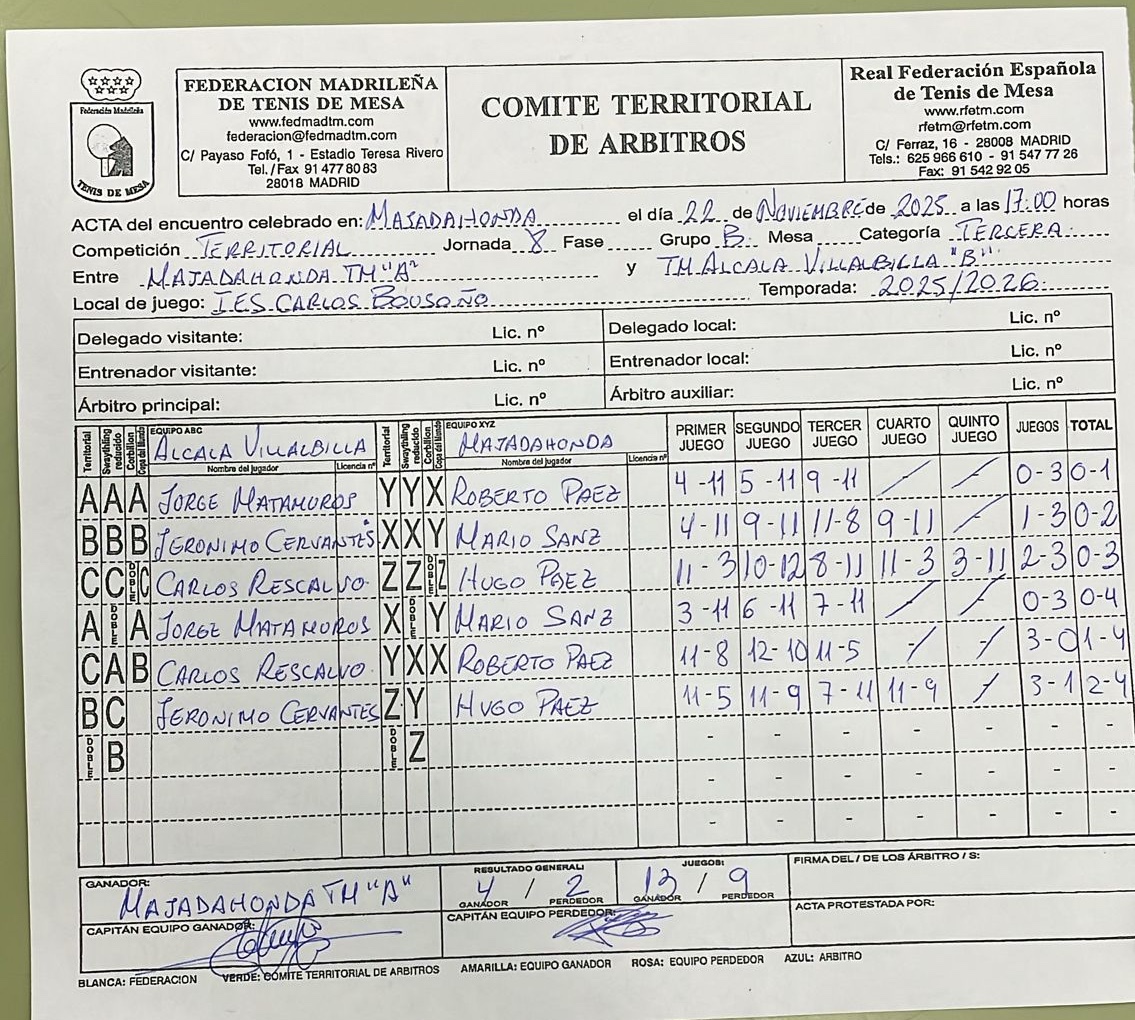 Federación Madrileña
TENIS DE MESA
FEDERACION MADRILEÑA
DE TENIS DE MESA
www.fedmadtm.com
federacion@fedmadtm.com
C/ Payaso Fofó, 1 - Estadio Teresa Rivero
Tel./Fax 91 477 80 83
28018 MADRID
COMITE TERRITORIAL
DE ARBITROS
Real Federación Española
de Tenis de Mesa
www.rfetm.com
rfetm@rfetm.com
C/ Ferraz, 16 - 28008 MADRID
Tels.: 625 966 610 - 91 547 77 26
Fax: 91 542 92 05
ACTA del encuentro celebrado en: MAJADAHONDA el día 22 de NOVIEMBRE de 2025 a las 17:00 horas
Competición TERRITORIAL Jornada 8 Fase Grupo B Mesa Categoría TERCERA
Entre MAJADAHONDA TM "A" y TM ALCALA VILLALBILLA "B"
Local de juego: IES CARLOS BOUSOÑO Temporada: 2025/2026
Delegado visitante: Lic. nº Delegado local: Lic. nº
Entrenador visitante: Lic. nº Entrenador local: Lic. nº
Árbitro principal: Lic. nº Árbitro auxiliar: Lic. nº
Territorial Swaythling reducido Corbillon Copa del Mundo EQUIPO ABC ALCALA VILLALBILLA Nombre del jugador Licencia nº Territorial Swaythling reducido Corbillon Copa del Mundo EQUIPO XYZ MAJADAHONDA Nombre del jugador Licencia nº PRIMER JUEGO SEGUNDO JUEGO TERCER JUEGO CUARTO JUEGO QUINTO JUEGO JUEGOS TOTAL
A A A JORGE MATAMOROS Y Y X ROBERTO PAEZ 4-11 5-11 9-11 / / 0-3 0-1
B B B JERONIMO CERVANTES X X Y MARIO SANZ 4-11 9-11 11-8 9-11 / 1-3 0-2
C C DOBLE C CARLOS RESCALVO Z Z DOBLE Z HUGO PAEZ 11-3 10-12 8-11 11-3 3-11 2-3 0-3
A DOBLE A JORGE MATAMOROS X DOBLE Y MARIO SANZ 3-11 6-11 7-11 / / 0-3 0-4
C A B CARLOS RESCALVO Y X X ROBERTO PAEZ 11-8 12-10 11-5 / / 3-0 1-4
B C JERONIMO CERVANTES Z Y HUGO PAEZ 11-5 11-9 7-11 11-9 / 3-1 2-4
DOBLE B DOBLE Z - - - - - - -
- - - - - - -
- - - - - - -
GANADOR: MAJADAHONDA TM "A"
RESULTADO GENERAL: 4 / 2
GANADOR PERDEDOR
JUEGOS: 13 / 9
GANADOR PERDEDOR
FIRMA DEL / DE LOS ÁRBITRO / S:
CAPITÁN EQUIPO GANADOR:
CAPITÁN EQUIPO PERDEDOR:
ACTA PROTESTADA POR:
BLANCA: FEDERACION VERDE: COMITE TERRITORIAL DE ARBITROS AMARILLA: EQUIPO GANADOR ROSA: EQUIPO PERDEDOR AZUL: ARBITRO